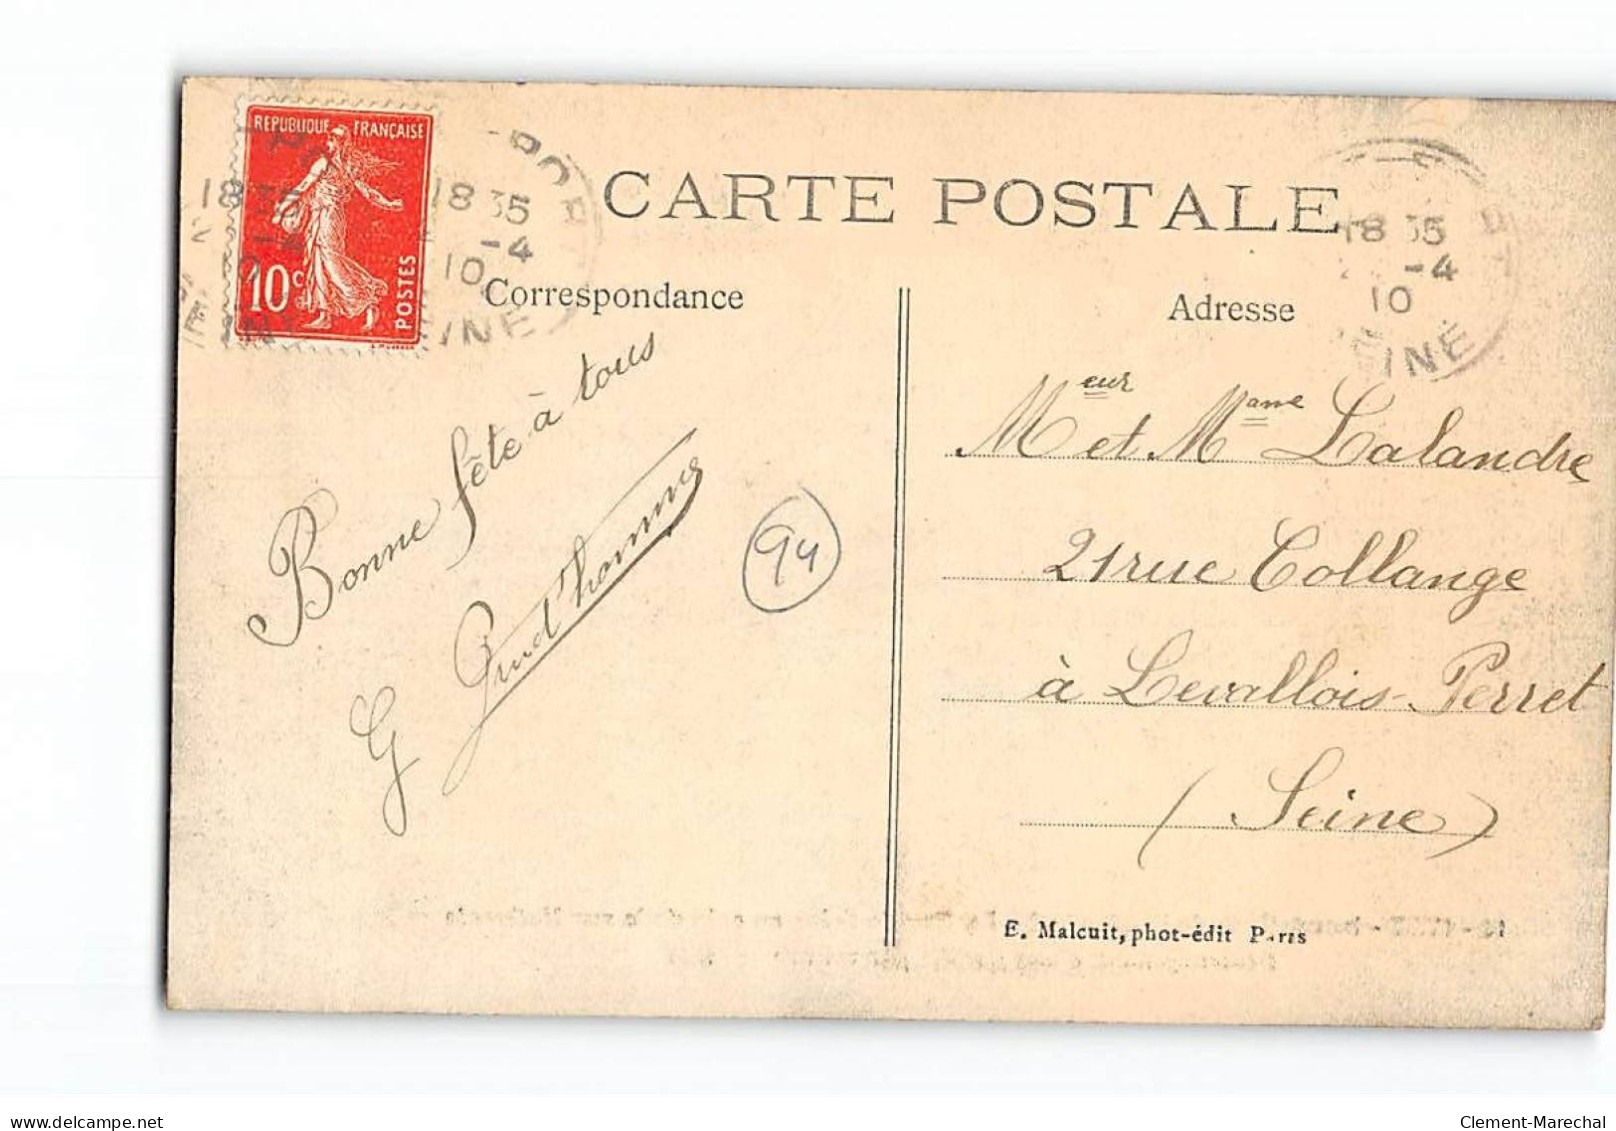 RÉPUBLIQUE FRANÇAISE
10c
POSTES
18 35
-4
10
INE
CARTE POSTALE
18 35
-4
10
INE
Correspondance
Adresse
Bonne fête à tous
G Prud'homme
94
Meur et Mame Lalandre
21 rue Collange
à Levallois-Perret
(Seine)
E. Malcuit, phot-édit Paris
delcampe.net
Clement-Marechal